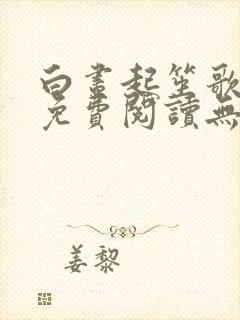 白晝起笙歌
免費閱讀無
姜黎